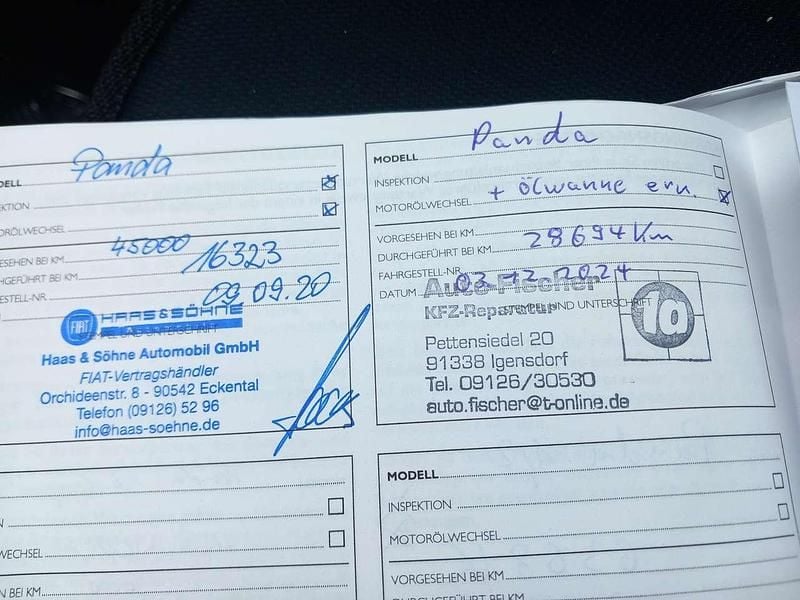 Panda
DELL
KTION
ORÖLWECHSEL
ESEHEN BEI KM 45000
HGEFÜHRT BEI KM 16323
ESTELL-NR.
09.09.20
FIAT HAAS & SÖHNE
STEMPEL UND UNTERSCHRIFT
Haas & Söhne Automobil GmbH
FIAT-Vertragshändler
Orchideenstr. 8 - 90542 Eckental
Telefon (09126) 52 96
info@haas-soehne.de
Panda
MODELL
INSPEKTION
MOTORÖLWECHSEL + Ölwanne ern.
VORGESEHEN BEI KM
DURCHGEFÜHRT BEI KM 28694 Km
FAHRGESTELL-NR.
DATUM 03.12.2024
Auto-Fischer
STEMPEL UND UNTERSCHRIFT
KFZ-Reparatur
1a
Pettensiedel 20
91338 Igensdorf
Tel. 09126/30530
auto.fischer@t-online.de
N
WECHSEL
N BEI KM
MODELL
INSPEKTION
MOTORÖLWECHSEL
VORGESEHEN BEI KM
DURCHGEFÜHRT BEI KM